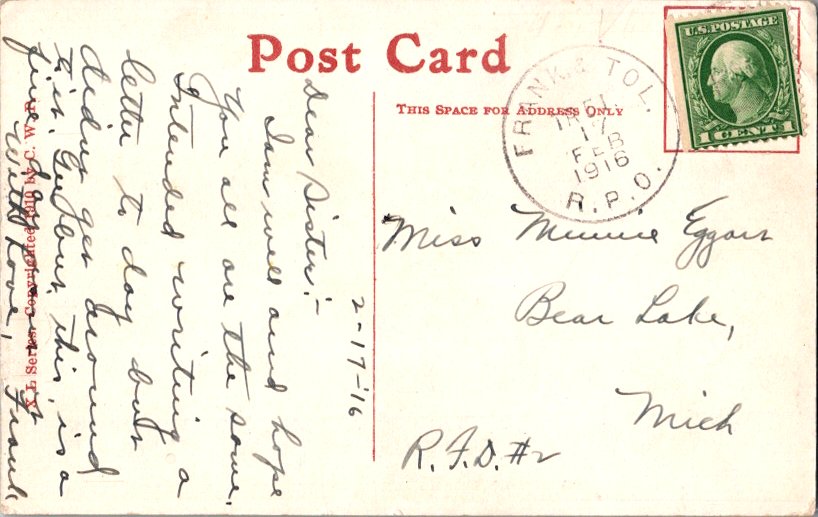 Post Card
THIS SPACE FOR ADDRESS ONLY
U.S. POSTAGE
1 CENT 1
FRANK. & TOL.
17
FEB
1916
R.P.O.
Miss Minnie
Bear Lake,
Mich
R.F.D. #2
2-17-16
Dear Sister:-
I am well and hope
you all are the same.
I intended writing a
letter to day but
didn't get around
to it. Gee but this is a
fine
With Love, Frank
X L Series, Copyrighted 1910 by C. W. P.